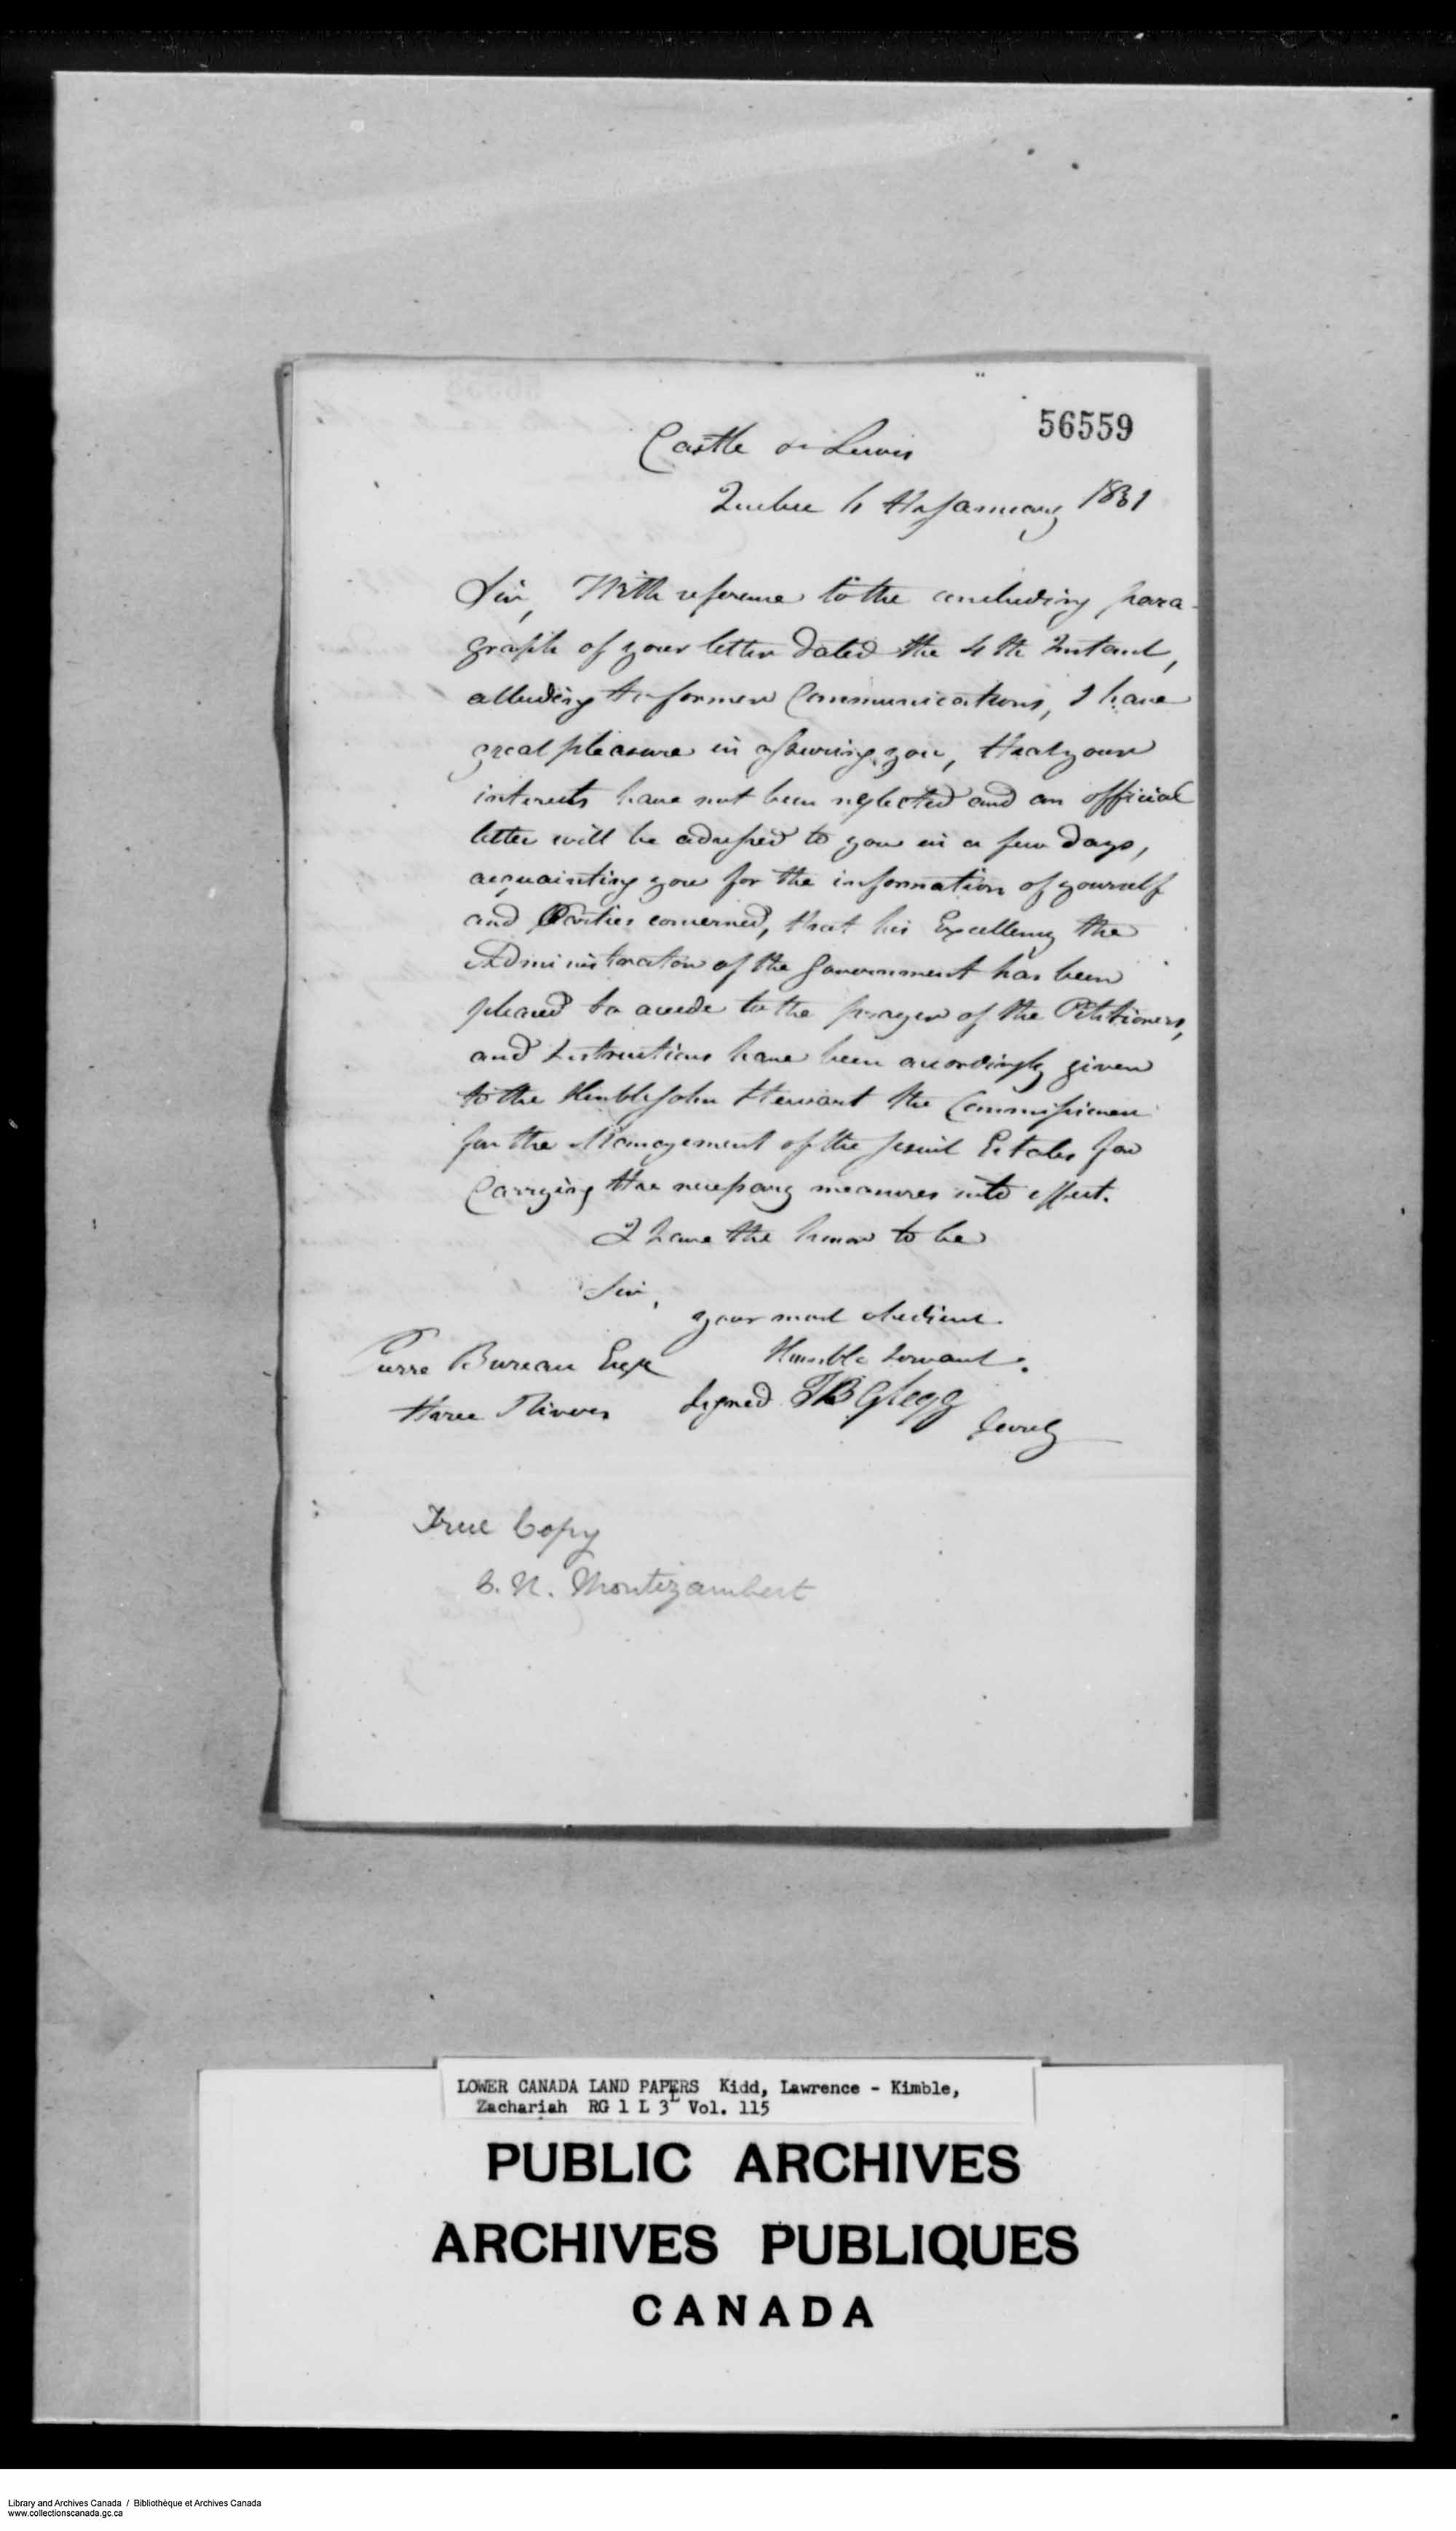 56559
Castle St Lewis
Quebec 6 th January 1831
Sir, With reference to the concluding para-
graph of your letter dated the 4th Instant,
alluding to former Communications, I have
great pleasure in assuring you, that your
interests have not been neglected and an official
letter will be adressed to you in a few days,
acquainting you for the information of yourself
and Parties concerned, that his Excellency the
Administrator of the Government has been
pleased to accede to the prayer of the Petitioners,
and Instructions have been accordingly given
to the Honble John Stewart the Commissioner
for the Management of the Jesuit Estates for
Carrying the necessary measures into effect.
I have the honor to be
Sir,
your most obedient
Humble Servant.
Pierre Bureau Esqr
Three Rivers
Signed JB Glegg
Secrety
True Copy
Montizambert
LOWER CANADA LAND PAPERS Kidd, Lawrence - Kimble,
Zachariah RG 1 L 3L Vol. 115
PUBLIC ARCHIVES
ARCHIVES PUBLIQUES
CANADA
Library and Archives Canada / Bibliothèque et Archives Canada
www.collectionscanada.gc.ca